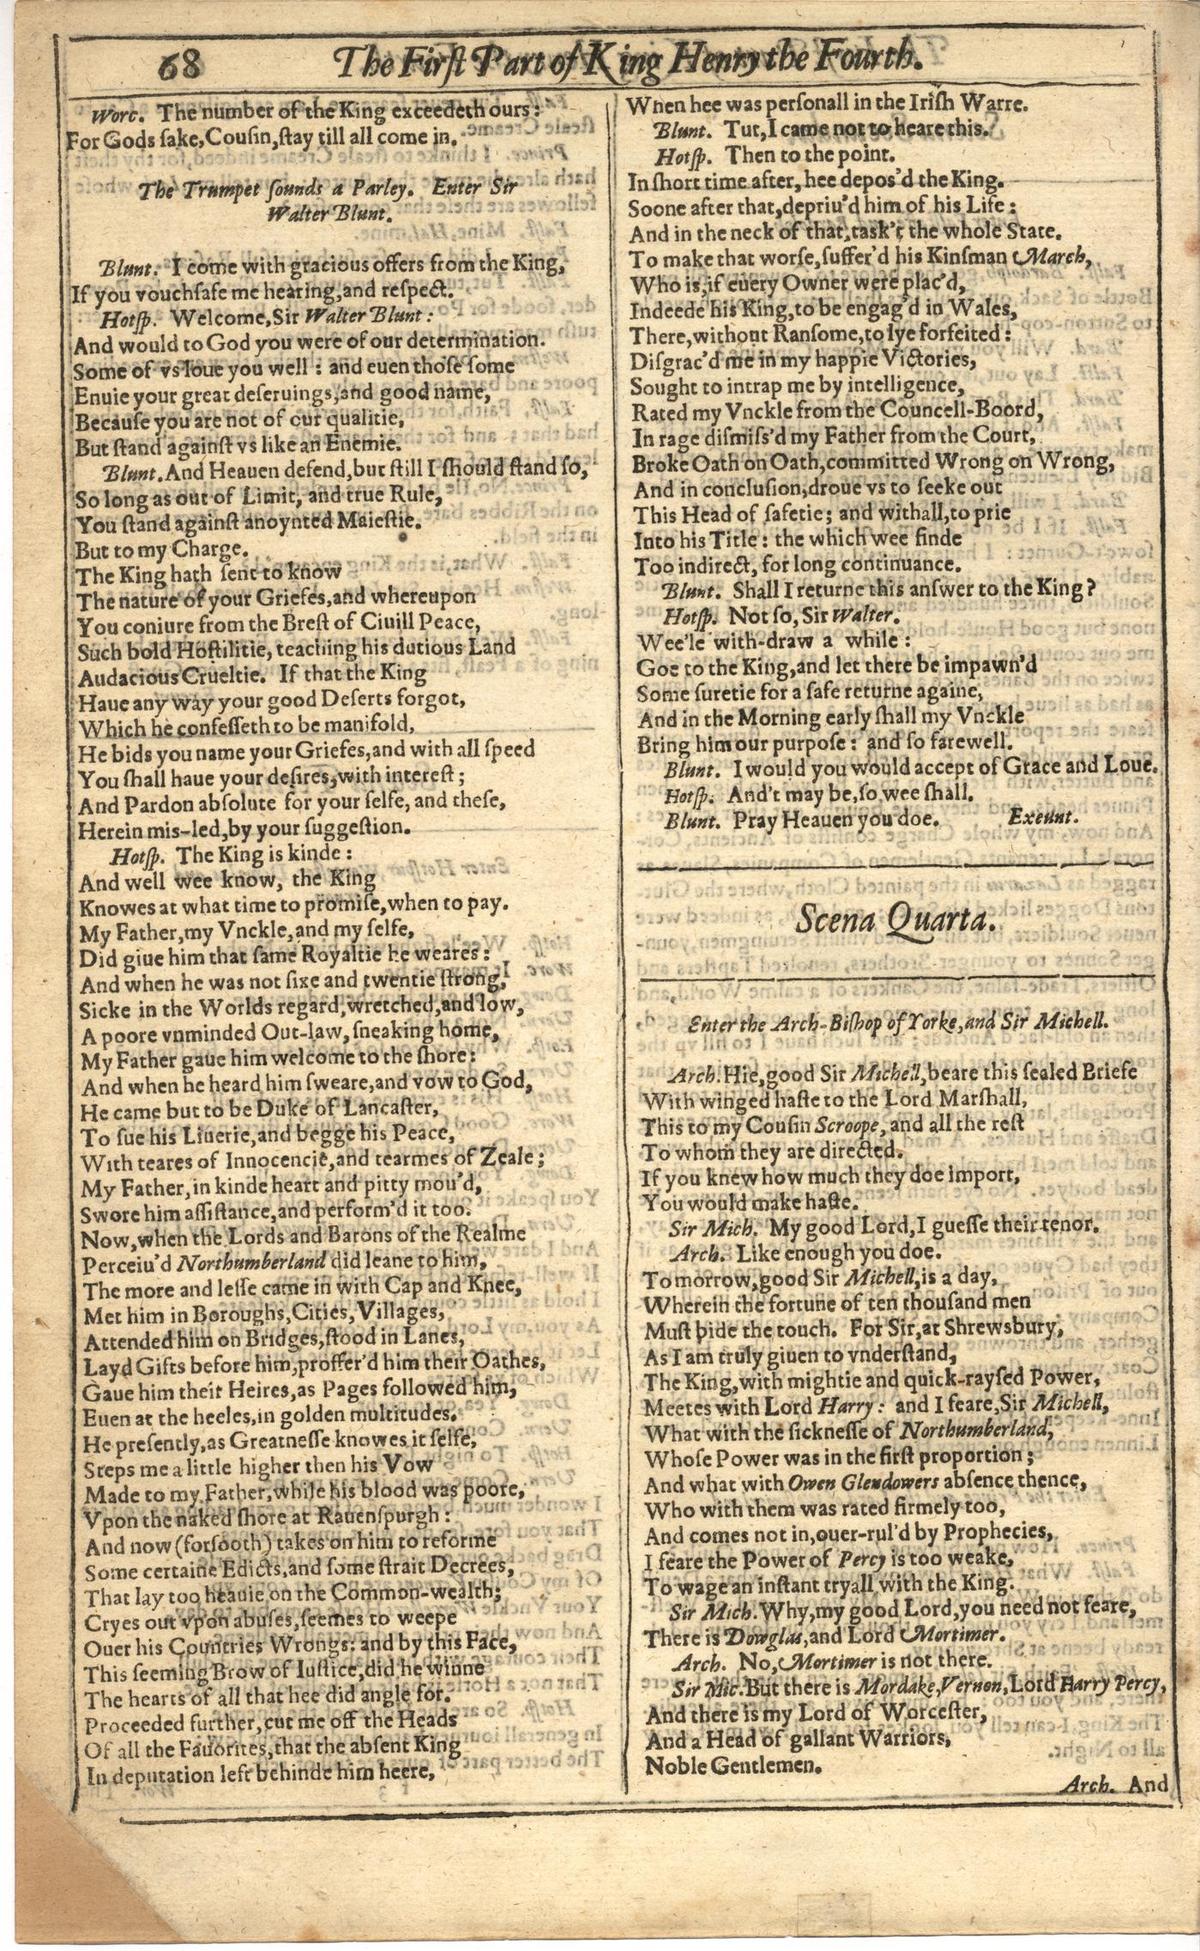 68
The Firſt Part of King Henry the Fourth.
Worc. The number of the King exceedeth ours:
For Gods ſake, Couſin, ſtay till all come in.
The Trumpet ſounds a Parley. Enter Sir
Walter Blunt.
Blunt. I come with gracious offers from the King,
If you vouchſafe me hearing, and reſpect.
Hotſp. Welcome, Sir Walter Blunt:
And would to God you were of our determination.
Some of vs loue you well: and euen thoſe ſome
Enuie your great deſeruings, and good name,
Becauſe you are not of our qualitie,
But ſtand againſt vs like an Enemie.
Blunt. And Heauen defend, but ſtill I ſhould ſtand ſo,
So long as out of Limit, and true Rule,
You ſtand againſt anoynted Maieſtie.
But to my Charge.
The King hath ſent to know
The nature of your Griefes, and whereupon
You coniure from the Breſt of Ciuill Peace,
Such bold Hoſtilitie, teaching his dutious Land
Audacious Crueltie. If that the King
Haue any way your good Deſerts forgot,
Which he confeſſeth to be manifold,
He bids you name your Griefes, and with all ſpeed
You ſhall haue your deſires, with intereſt;
And Pardon abſolute for your ſelfe, and theſe,
Herein miſ-led, by your ſuggeſtion.
Hotſp. The King is kinde:
And well wee know, the King
Knowes at what time to promiſe, when to pay.
My Father, my Vnckle, and my ſelfe,
Did giue him that ſame Royaltie he weares:
And when he was not ſixe and twentie ſtrong,
Sicke in the Worlds regard, wretched, and low,
A poore vnminded Out-law, ſneaking home,
My Father gaue him welcome to the ſhore:
And when he heard him ſweare, and vow to God,
He came but to be Duke of Lancaſter,
To ſue his Liuerie, and begge his Peace,
With teares of Innocencie, and tearmes of Zeale;
My Father, in kinde heart and pitty mou'd,
Swore him aſſiſtance, and perform'd it too.
Now, when the Lords and Barons of the Realme
Perceiu'd Northumberland did leane to him,
The more and leſſe came in with Cap and Knee,
Met him in Boroughs, Cities, Villages,
Attended him on Bridges, ſtood in Lanes,
Layd Gifts before him, proffer'd him their Oathes,
Gaue him their Heires, as Pages followed him,
Euen at the heeles, in golden multitudes.
He preſently, as Greatneſſe knowes it ſelfe,
Steps me a little higher then his Vow
Made to my Father, while his blood was poore,
Vpon the naked ſhore at Rauenſpurgh:
And now (forſooth) takes on him to reforme
Some certaine Edicts, and ſome ſtrait Decrees,
That lay too heauie on the Common-wealth;
Cryes out vpon abuſes, ſeemes to weepe
Ouer his Countries Wrongs: and by this Face,
This ſeeming Brow of Iuſtice, did he winne
The hearts of all that hee did angle for.
Proceeded further, cut me off the Heads
Of all the Fauorites, that the abſent King
In deputation left behinde him heere,
When hee was perſonall in the Iriſh Warre.
Blunt. Tut, I came not to heare this.
Hotſp. Then to the point.
In ſhort time after, hee depos'd the King.
Soone after that, depriu'd him of his Life:
And in the neck of that, task't the whole State.
To make that worſe, ſuffer'd his Kinſman March,
Who is, if euery Owner were plac'd,
Indeede his King, to be engag'd in Wales,
There, without Ranſome, to lye forfeited:
Diſgrac'd me in my happie Victories,
Sought to intrap me by intelligence,
Rated my Vnckle from the Councell-Boord,
In rage diſmiſs'd my Father from the Court,
Broke Oath on Oath, committed Wrong on Wrong,
And in concluſion, droue vs to ſeeke out
This Head of ſafetie; and withall, to prie
Into his Title: the which wee finde
Too indirect, for long continuance.
Blunt. Shall I returne this anſwer to the King?
Hotſp. Not ſo, Sir Walter.
Wee'le with-draw a while:
Goe to the King, and let there be impawn'd
Some ſuretie for a ſafe returne againe,
And in the Morning early ſhall my Vnckle
Bring him our purpoſe: and ſo farewell.
Blunt. I would you would accept of Grace and Loue.
Hotſp. And't may be, ſo wee ſhall.
Blunt. Pray Heauen you doe. Exeunt.
Scena Quarta.
Enter the Arch-Biſhop of Yorke, and Sir Michell.
Arch. Hie, good Sir Michell, beare this ſealed Briefe
With winged haſte to the Lord Marſhall,
This to my Couſin Scroope, and all the reſt
To whom they are directed.
If you knew how much they doe import,
You would make haſte.
Sir Mich. My good Lord, I gueſſe their tenor.
Arch. Like enough you doe.
Tomorrow, good Sir Michell, is a day,
Wherein the fortune of ten thouſand men
Muſt bide the touch. For Sir, at Shrewsbury,
As I am truly giuen to vnderſtand,
The King, with mightie and quick-rayſed Power,
Meetes with Lord Harry: and I feare, Sir Michell,
What with the ſickneſſe of Northumberland,
Whoſe Power was in the firſt proportion;
And what with Owen Glendowers abſence thence,
Who with them was rated firmely too,
And comes not in, ouer-rul'd by Prophecies,
I feare the Power of Percy is too weake,
To wage an inſtant tryall with the King.
Sir Mich. Why, my good Lord, you need not feare,
There is Dowglas, and Lord Mortimer.
Arch. No, Mortimer is not there.
Sir Mic. But there is Mordake, Vernon, Lord Harry Percy,
And there is my Lord of Worceſter,
And a Head of gallant Warriors,
Noble Gentlemen.
Arch. And